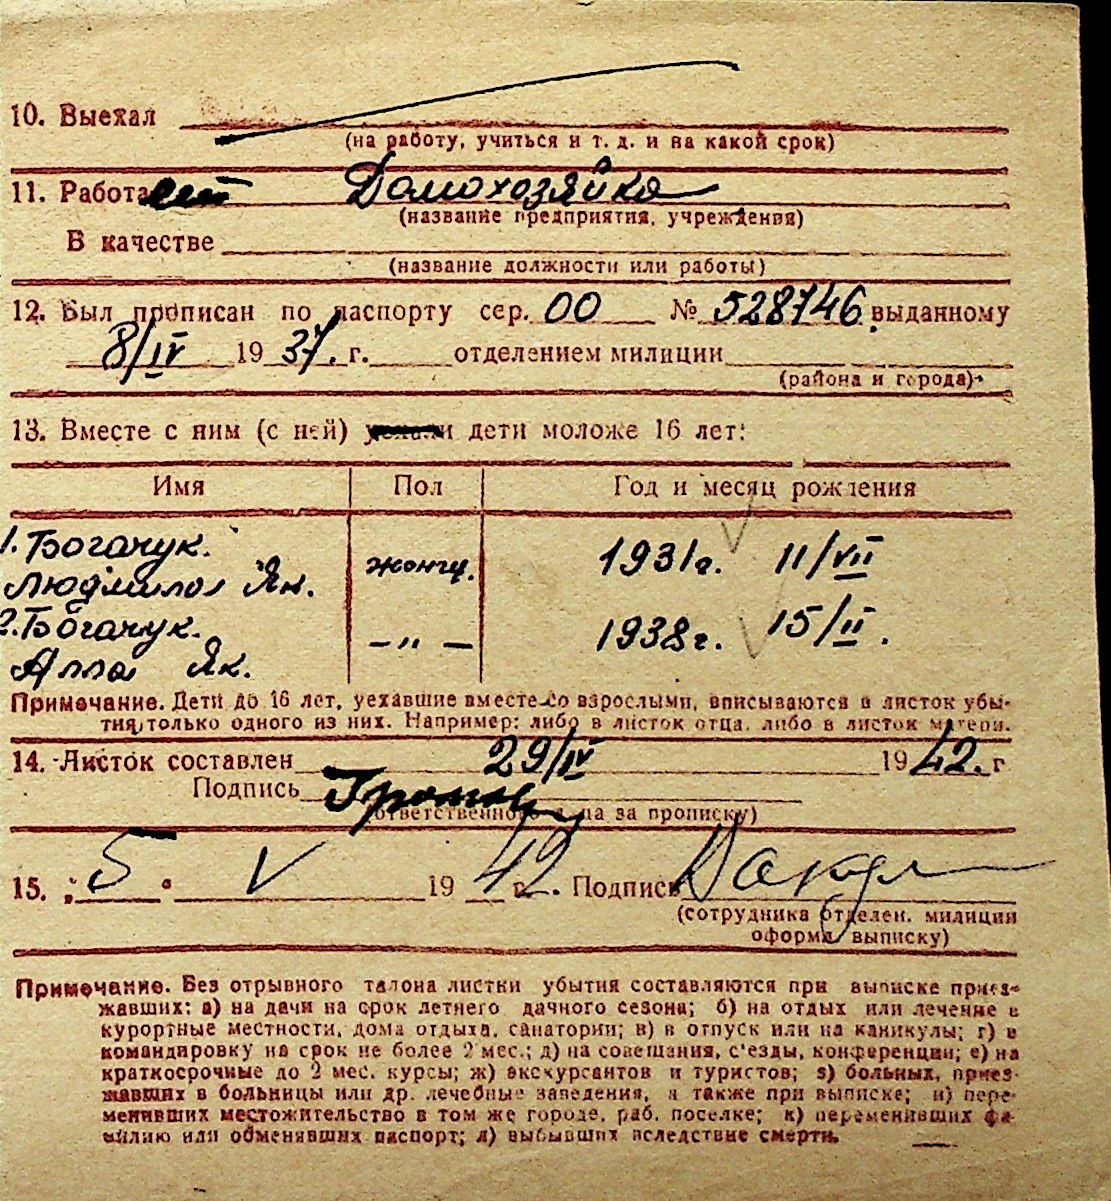 10. Выехал
(на работу, учиться и т. д. и на какой срок)
11. Работает Домохозяйка
(название предприятия, учреждения)
В качестве
(название должности или работы)
12. Был прописан по паспорту сер. 00 № 528746 выданному
8/IV 1937. г. отделением милиции
(района и города)
13. Вместе с ним (с ней) уехали дети моложе 16 лет:
Имя Пол Год и месяц рождения
1. Богачук.
Людмила Як. женщ. 1931г. 11/VII
2. Богачук. -"- 1938г. 15/II.
Алла Як.
Примечание. Дети до 16 лет, уехавшие вместе со взрослыми, вписываются в листок убы-
тия только одного из них. Например: либо в листок отца, либо в листок матери.
14. Листок составлен 29/IV 1942. г
Подпись
(ответственного лица за прописку)
15. "5" V 1942 г. Подпись
(сотрудника отделен. милиции
оформ. выписку)
Примечание. Без отрывного талона листки убытия составляются при выписке приез-
жавших: а) на дачи на срок летнего дачного сезона; б) на отдых или лечение в
курортные местности, дома отдыха, санатории; в) в отпуск или на каникулы; г) в
командировку на срок не более 2 мес.; д) на совещания, с'езды, конференции; е) на
краткосрочные до 2 мес. курсы; ж) экскурсантов и туристов; з) больных, приез-
жавших в больницы или др. лечебные заведения, а также при выписке; и) пере-
менивших местожительство в том же городе, раб. поселке; к) переменивших фа-
милию или обменявших паспорт; л) выбывших вследствие смерти.